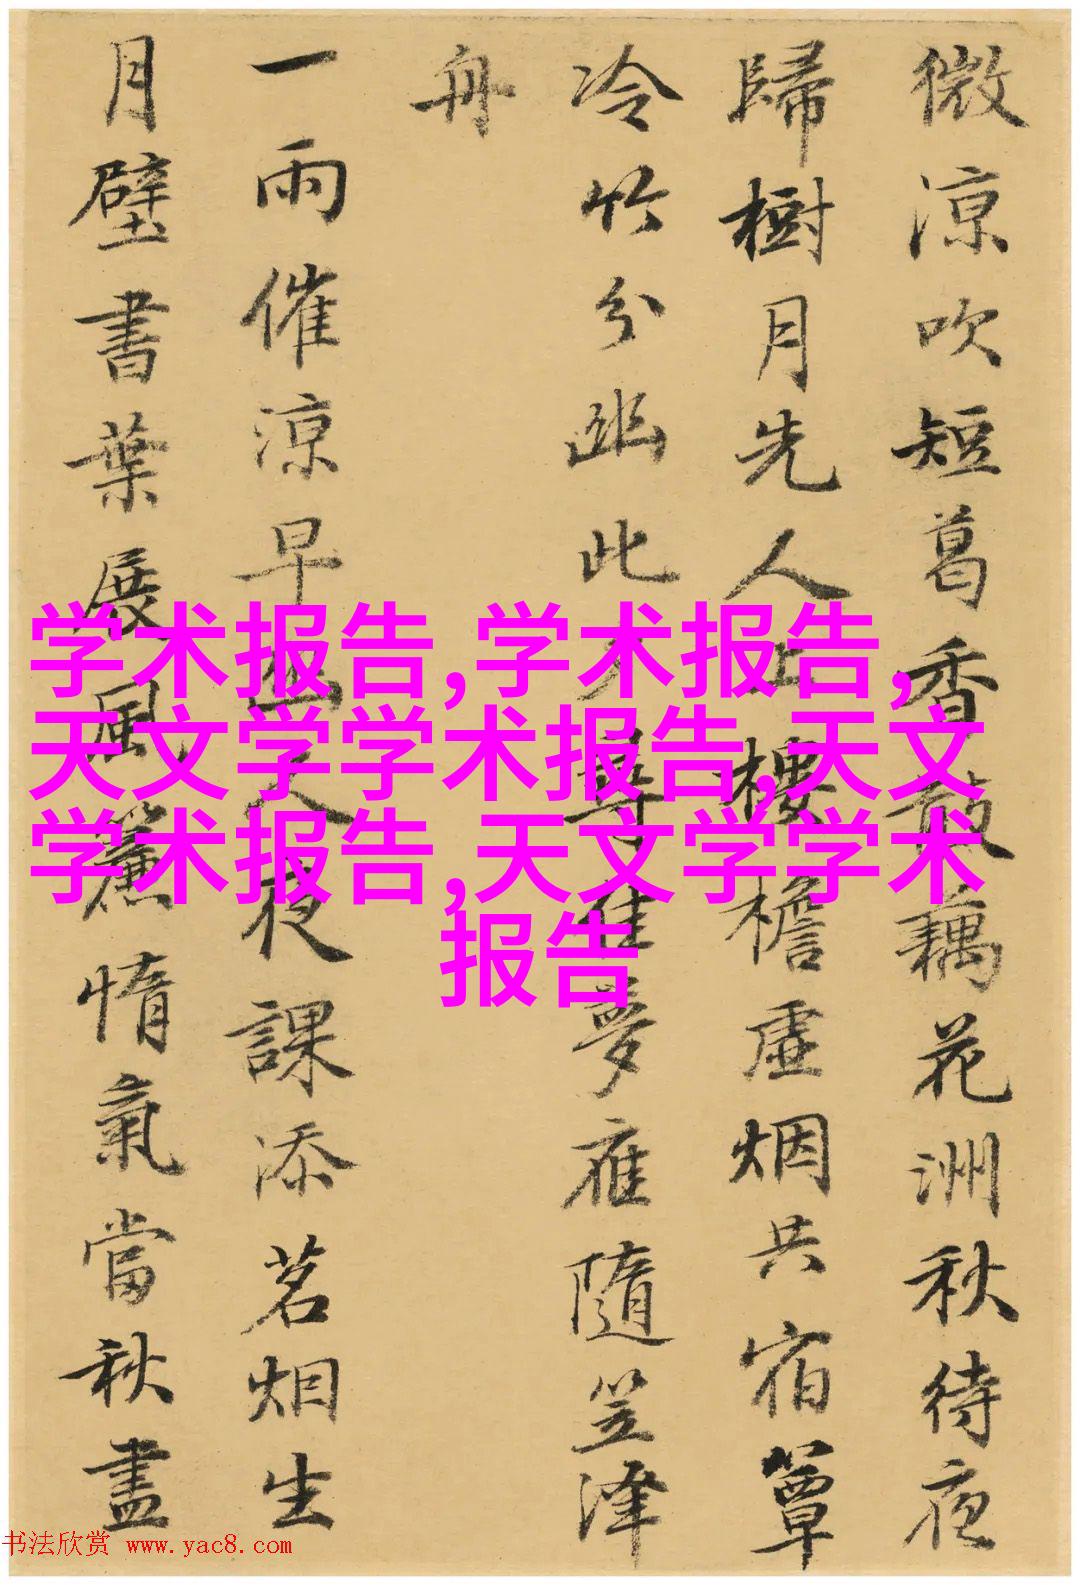 微涼吹短葛香散藕花洲秋待夜
歸樹月先人上樓檐虛烟共宿簟
冷竹分幽此尋佳夢隨笠澤
舟
一雨催涼早幽人夜課添茗烟生
月壁書葉展風簾惰氣當秋盡
学术报告,学术报告,
天文学学术报告,天文
学术报告,天文学学术
报告
书法欣赏 www.yac8.com